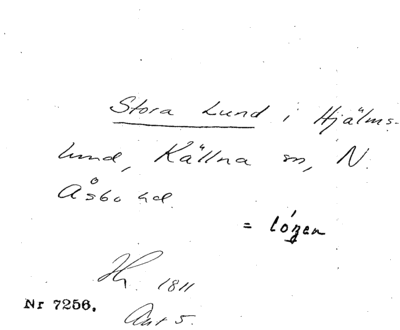 Stora Lund i Hjälms-
lund, Källna sn, N.
Åsbo hd.
= lózen
1811
Nr 7256. Akt 5.